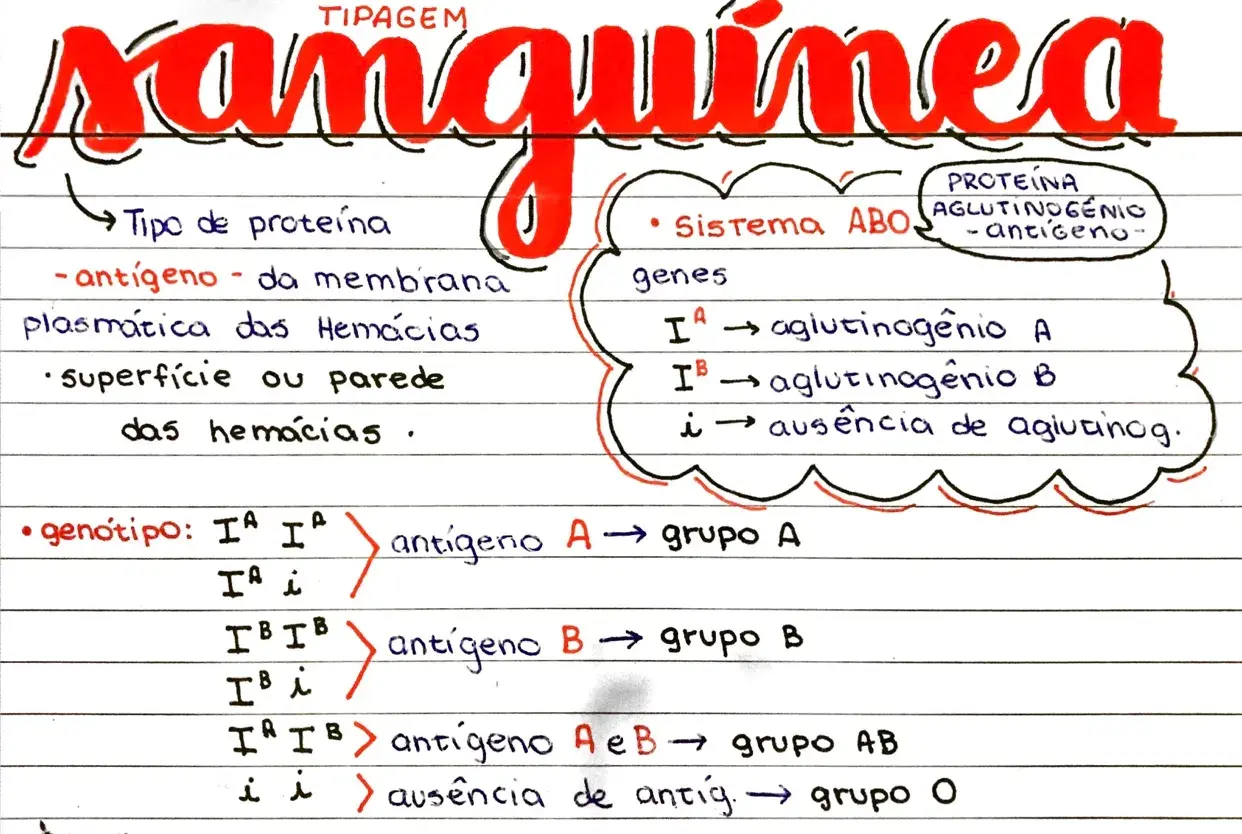 TIPAGEM
sanguínea
→ Tipo de proteína
- antígeno - da membrana
plasmática das Hemácias
· superfície ou parede
das hemácias .
• Sistema ABO
PROTEÍNA
AGLUTINOGÊNIO
- antígeno -
genes
Iᴬ → aglutinogênio A
Iᴮ → aglutinogênio B
i → ausência de aglutinog.
• genótipo: Iᴬ Iᴬ > antígeno A → grupo A
Iᴬ i
Iᴮ Iᴮ > antígeno B → grupo B
Iᴮ i
Iᴬ Iᴮ > antígeno A e B → grupo AB
i i > ausência de antíg. → grupo O